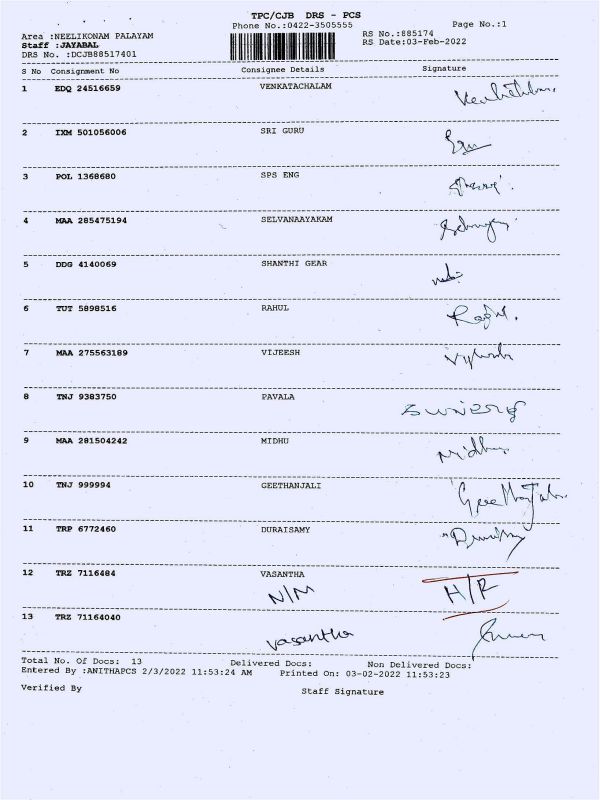 TPC/CJB DRS - PCS
Phone No.:0422-3505555
Page No.:1
Area :NEELIKONAM PALAYAM
Staff :JAYABAL
DRS No. :DCJB88517401
RS No.:885174
RS Date:03-Feb-2022
S No Consignment No Consignee Details Signature
1 EDQ 24516659 VENKATACHALAM
2 IXM 501056006 SRI GURU
3 POL 1368680 SPS ENG
4 MAA 285475194 SELVANAAYAKAM
5 DDG 4140069 SHANTHI GEAR
6 TUT 5898516 RAHUL
7 MAA 275563189 VIJEESH
8 TNJ 9383750 PAVALA
9 MAA 281504242 MIDHU Midhu
10 TNJ 999994 GEETHANJALI
11 TRP 6772460 DURAISAMY
12 TRZ 7116484 VASANTHA
N/M H/R
13 TRZ 71164040
vasantha
Total No. Of Docs: 13 Delivered Docs: Non Delivered Docs:
Entered By :ANITHAPCS 2/3/2022 11:53:24 AM Printed On: 03-02-2022 11:53:23
Verified By Staff Signature